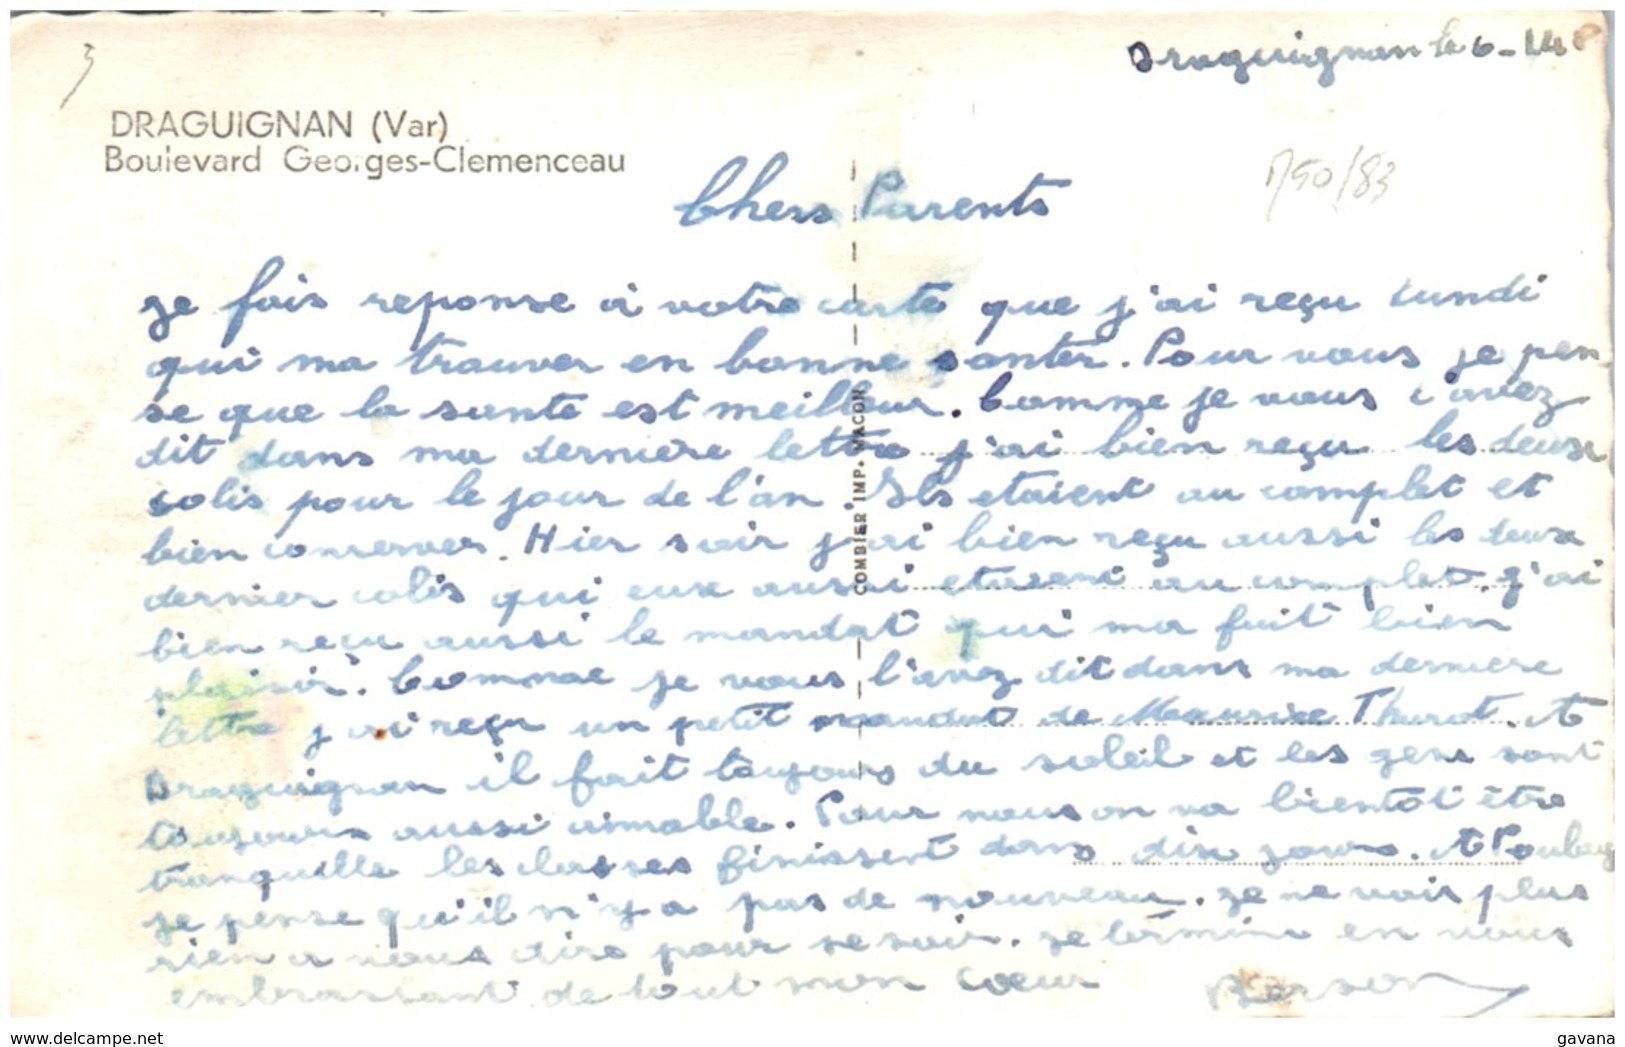 Draguignan le 6-14
3
DRAGUIGNAN (Var)
Boulevard Georges-Clemenceau
1950/83
Chers Parents
je fais reponse a votre carte que j'ai reçu Lundi
qui ma trouver en bonne santer. Pour vous je pen
se que la sante est meilleur. Comme je vous l'avez
dit dans ma derniere lettre j'ai bien reçu les deux
colis pour le jour de l'an. Ils etaient au complet et
bien conserver. Hier soir j'ai bien reçu aussi les deux
dernier colis qui eux aussi etaient au complet. j'ai
bien reçu aussi le mandat qui ma fait bien
plaisir. Comme je vous l'avez dit dans ma derniere
lettre j'ai reçu un petit mandat de Maurice Thurot. A
Draguignan il fait toujours du soleil et les gens sont
toujours aussi aimable. Pour nous on va bientôt être
tranquille les classes finissent dans dix jours. A
je pense qu'il n'y a pas de nouveau. je ne vois plus
rien a vous dire pour se soir. je termine en vous
embrassant de tout mon cœur
COMBIER IMP. MACON
www.delcampe.net
gavana